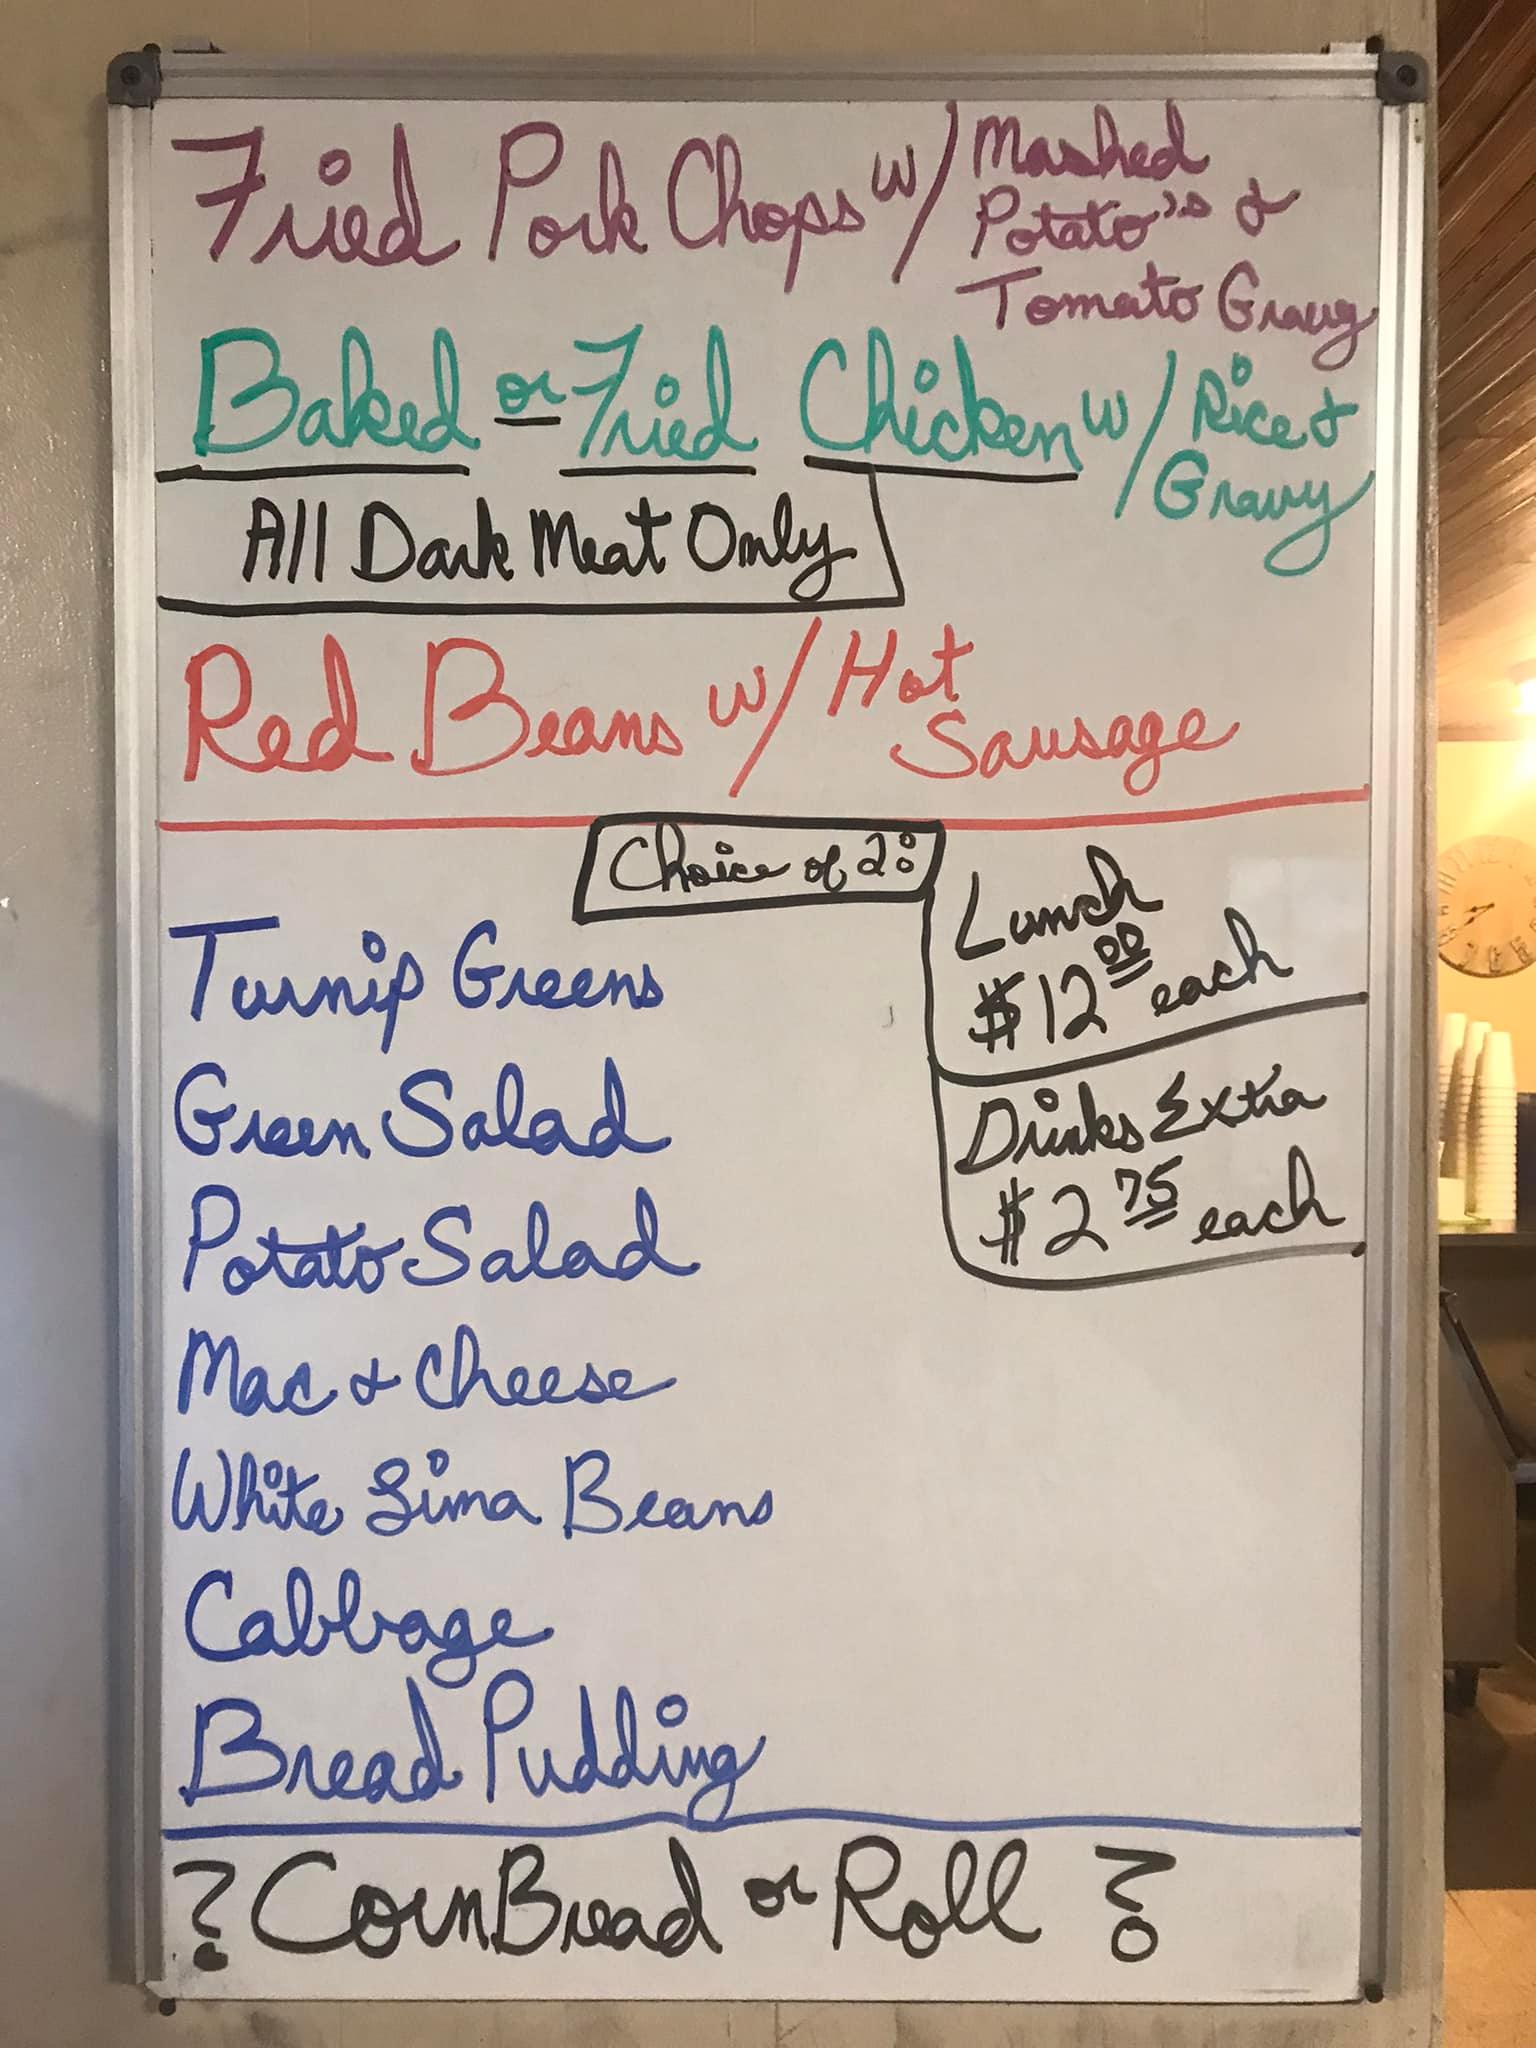 Fried Pork Chops w/ Mashed
Potato's &
Tomato Gravy
Baked or Fried Chicken w/ Rice &
Gravy
All Dark Meat Only
Red Beans w/ Hot
Sausage
Choice of 2:
Lunch
$12.00 each
Drinks Extra
$2.75 each
Turnip Greens
Green Salad
Potato Salad
Mac & Cheese
White Lima Beans
Cabbage
Bread Pudding
? CornBread or Roll ?